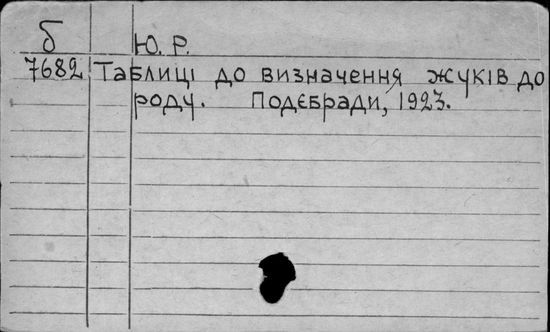 б Ю. Р.
7682 Таблиці до визначення жуків до
роду. Подєбради, 1923.